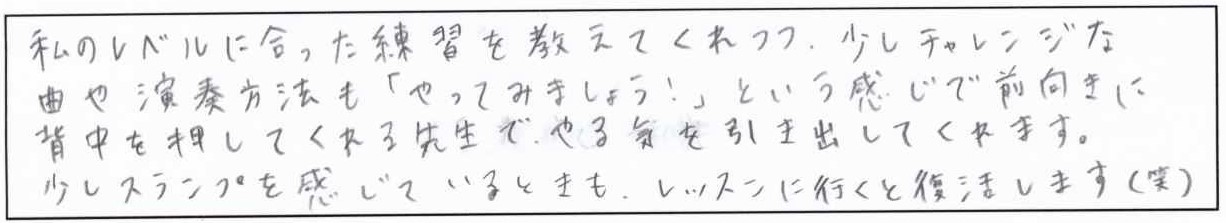 私のレベルに合った練習を教えてくれつつ、少しチャレンジな
曲や演奏方法も「やってみましょう!」という感じで前向きに
背中を押してくれる先生で、やる気を引き出してくれます。
少しスランプを感じているときも、レッスンに行くと復活します(笑)